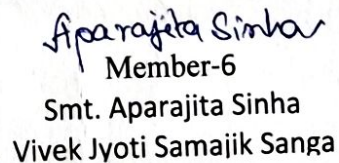 Aparajita Sinha
Member-6
Smt. Aparajita Sinha
Vivek Jyoti Samajik Sanga